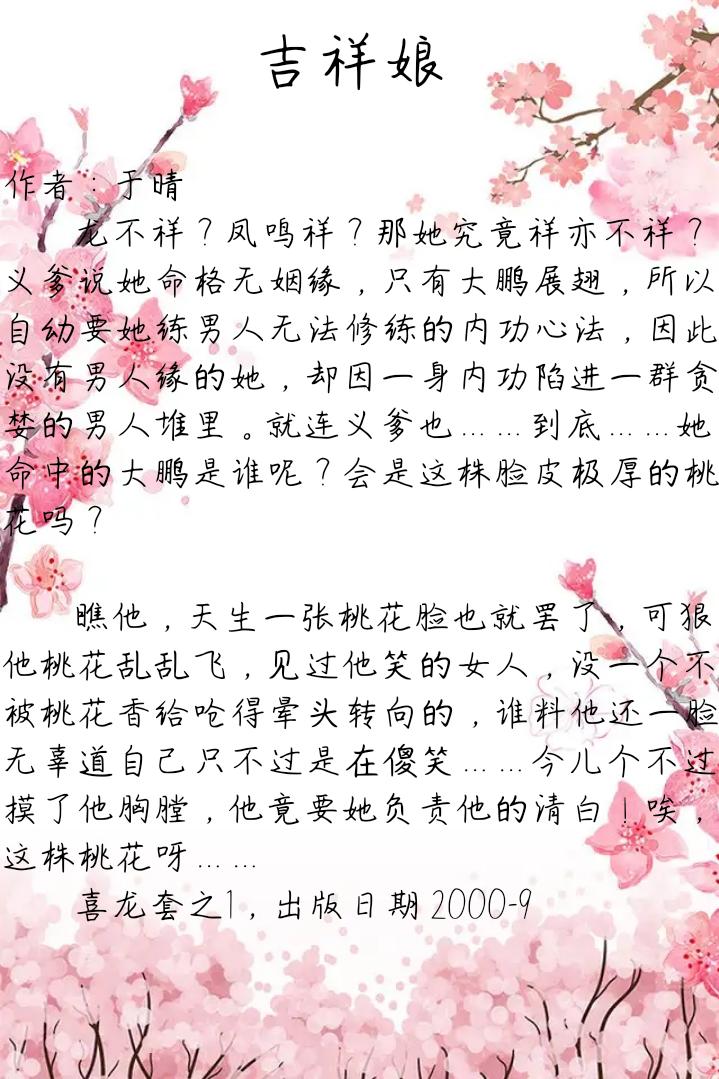 吉祥娘
作者：于晴
龙不祥？凤鸣祥？那她究竟祥亦不祥？
义爹说她命格无姻缘，只有大鹏展翅，所以
自幼要她练男人无法修练的内功心法，因此
没有男人缘的她，却因一身内功陷进一群贪
婪的男人堆里。就连义爹也……到底……她
命中的大鹏是谁呢？会是这株脸皮极厚的桃
花吗？
瞧他，天生一张桃花脸也就罢了，可狠
他桃花乱乱飞，见过他笑的女人，没一个不
被桃花香给呛得晕头转向的，谁料他还一脸
无辜道自己只不过是在傻笑……今儿个不过
摸了他胸膛，他竟要她负责他的清白！唉，
这株桃花呀……
喜龙套之1，出版日期2000-9